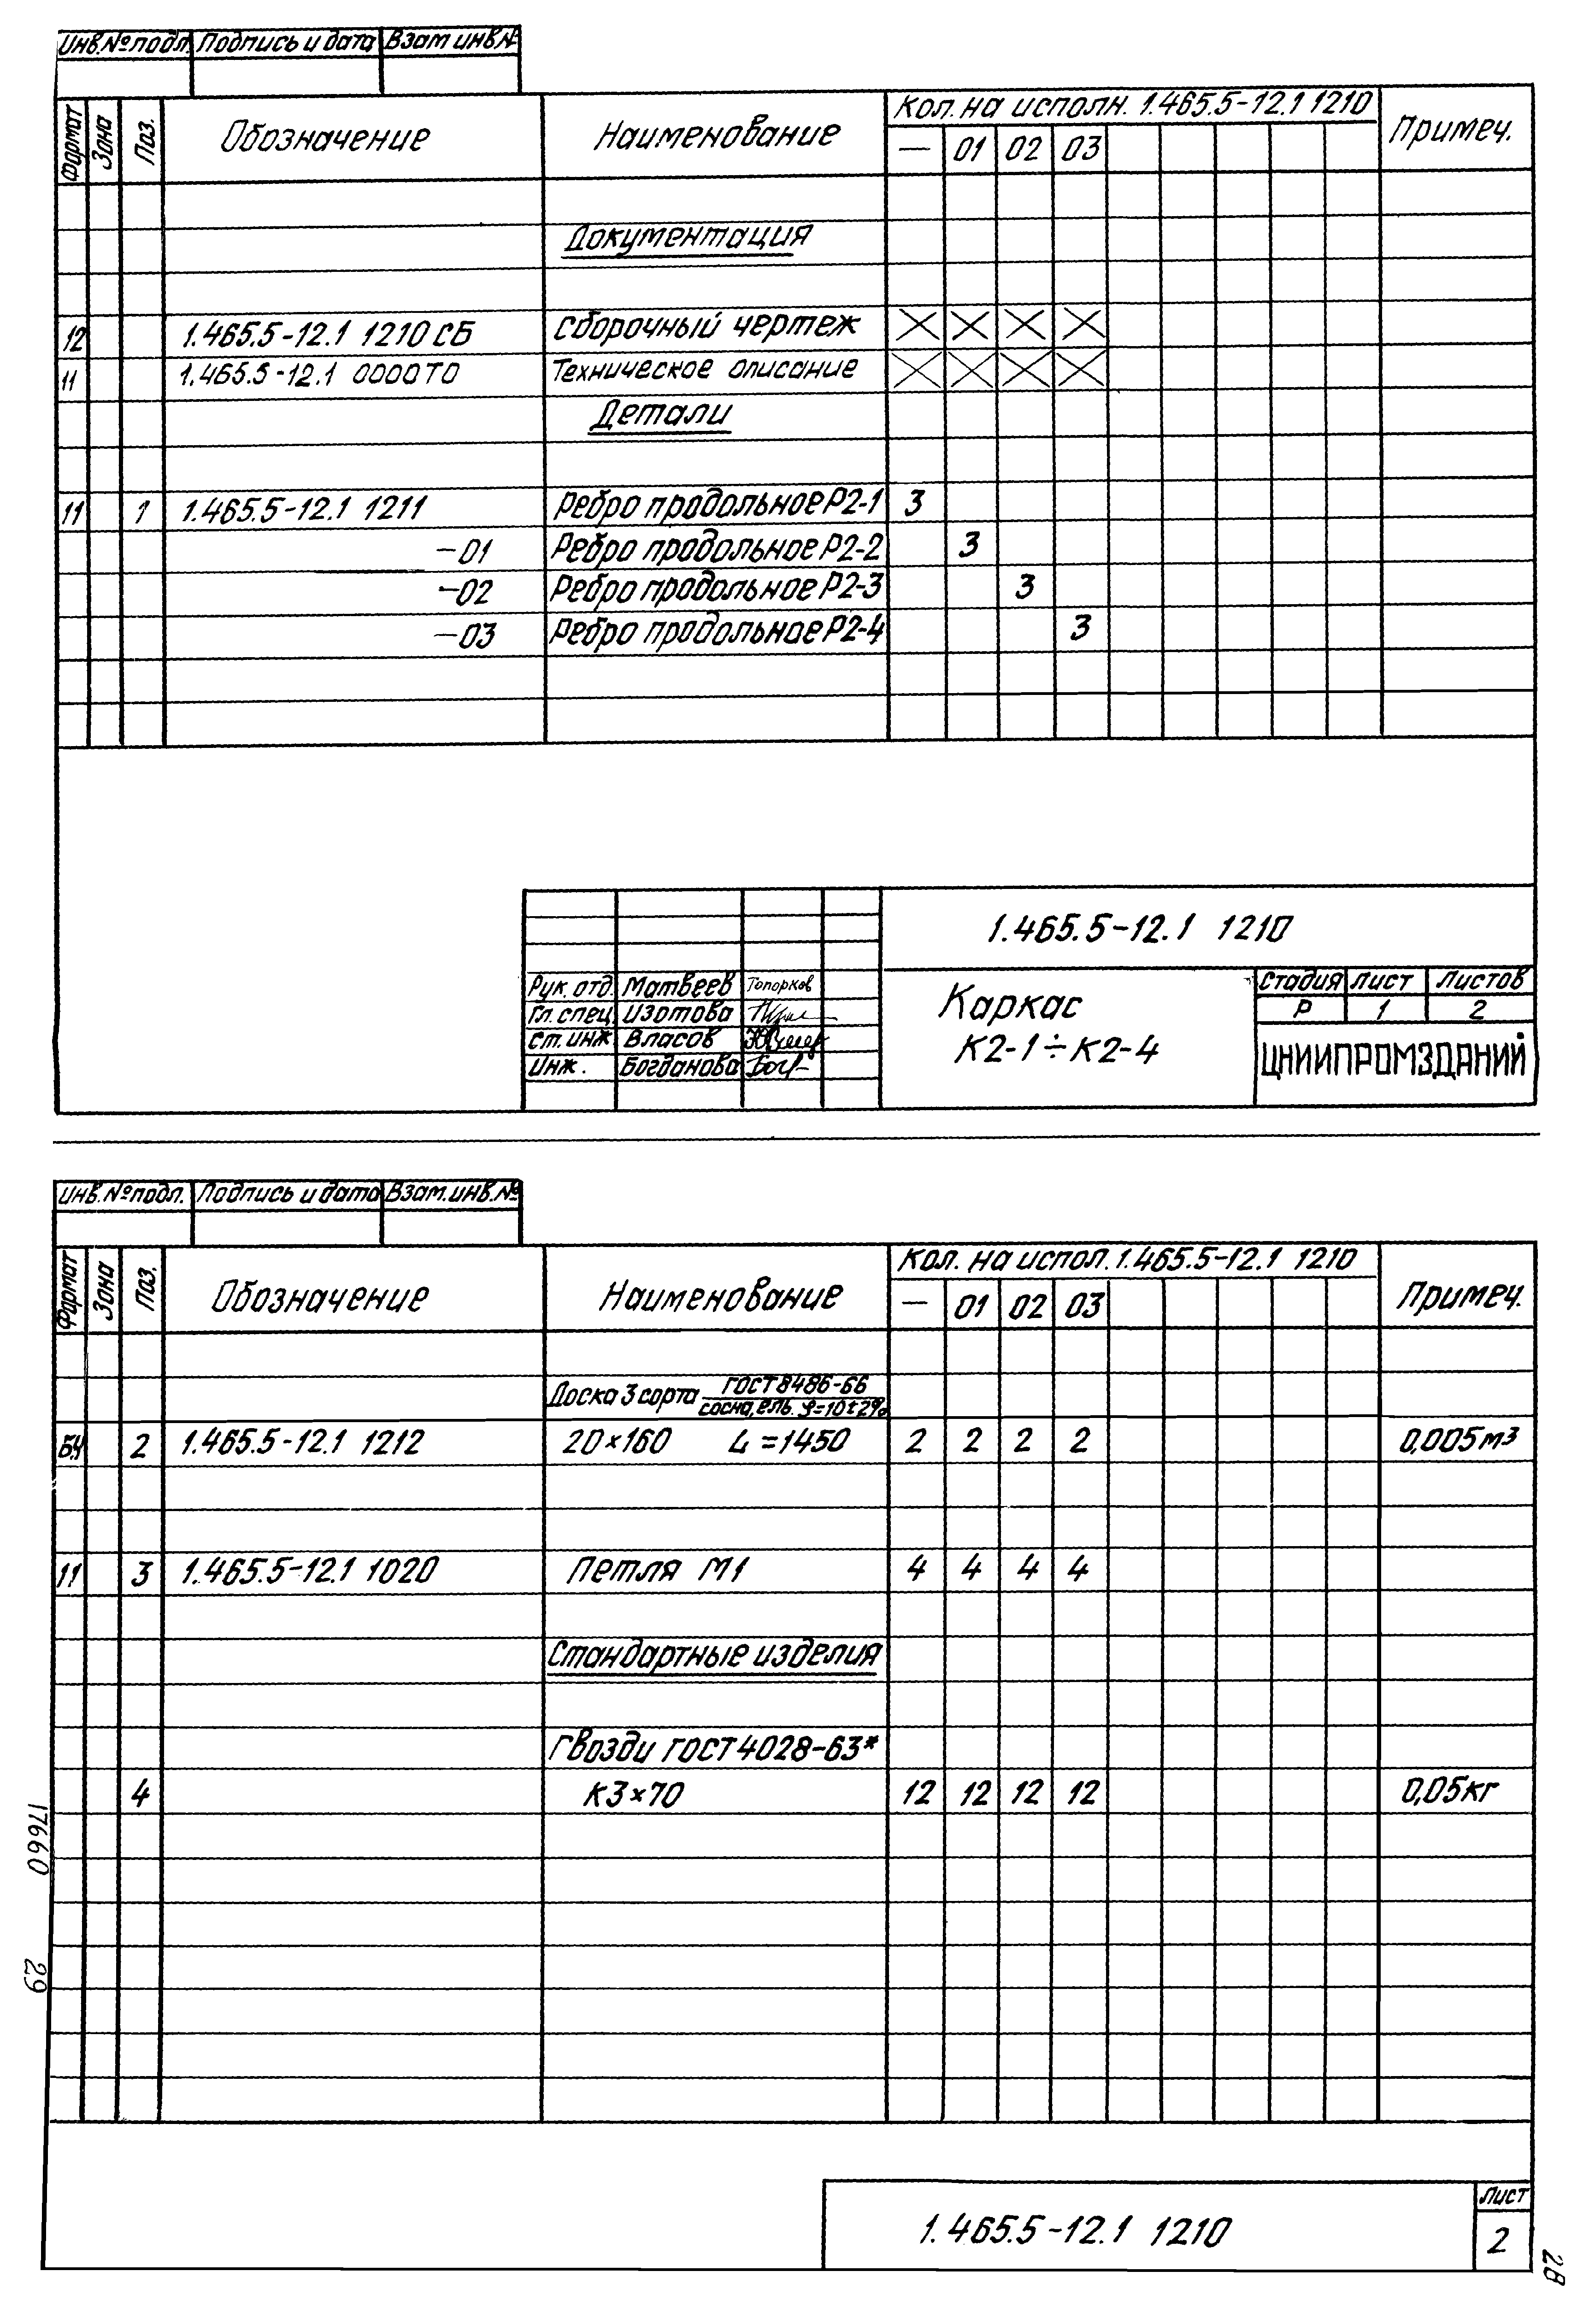 Инв.№подл. Подпись и дата Взам инв.№
Формат Зона Поз. Обозначение Наименование Кол. на исполн. 1.465.5-12.1 1210 Примеч.
— 01 02 03
Документация
12 1.465.5-12.1 1210 СБ Сборочный чертеж
11 1.465.5-12.1 0000ТО Техническое описание
Детали
11 1 1.465.5-12.1 1211 Ребро продольное Р2-1 3
—01 Ребро продольное Р2-2 3
—02 Ребро продольное Р2-3 3
—03 Ребро продольное Р2-4 3
1.465.5-12.1 1210
Рук. отд. Матвеев Топорков
Гл. спец. Изотова
Ст. инж. Власов
Инж. Богданова
Каркас
К2-1÷К2-4
Стадия Лист Листов
Р 1 2
ЦНИИПРОМЗДАНИЙ
Инв.№подл. Подпись и дата Взам.инв.№
Формат Зона Поз. Обозначение Наименование Кол. на испол. 1.465.5-12.1 1210 Примеч.
— 01 02 03
Доска 3 сорта ГОСТ 8486-66
сосна, ель. φ=10±2%
БЧ 2 1.465.5-12.1 1212 20×160 L=1450 2 2 2 2 0,005м³
11 3 1.465.5-12.1 1020 Петля М1 4 4 4 4
Стандартные изделия
Гвозди ГОСТ 4028-63*
4 К3×70 12 12 12 12 0,05кг
17660 29
1.465.5-12.1 1210
Лист
2
28